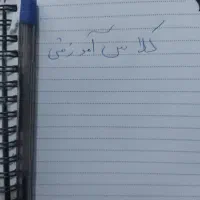 کلاس آموزشی